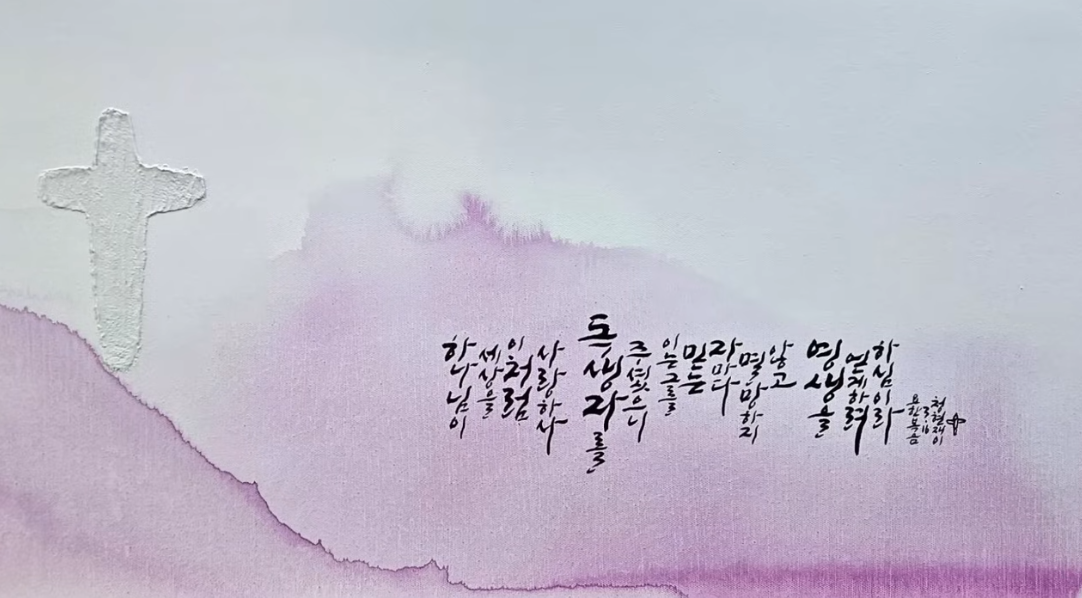 하나님이
세상을
이처럼
사랑하사
독생자를
주셨으니
이는 그를
믿는
자마다
멸망하지
않고
영생을
얻게하려
하심이라
요한복음
3:16
청현재이